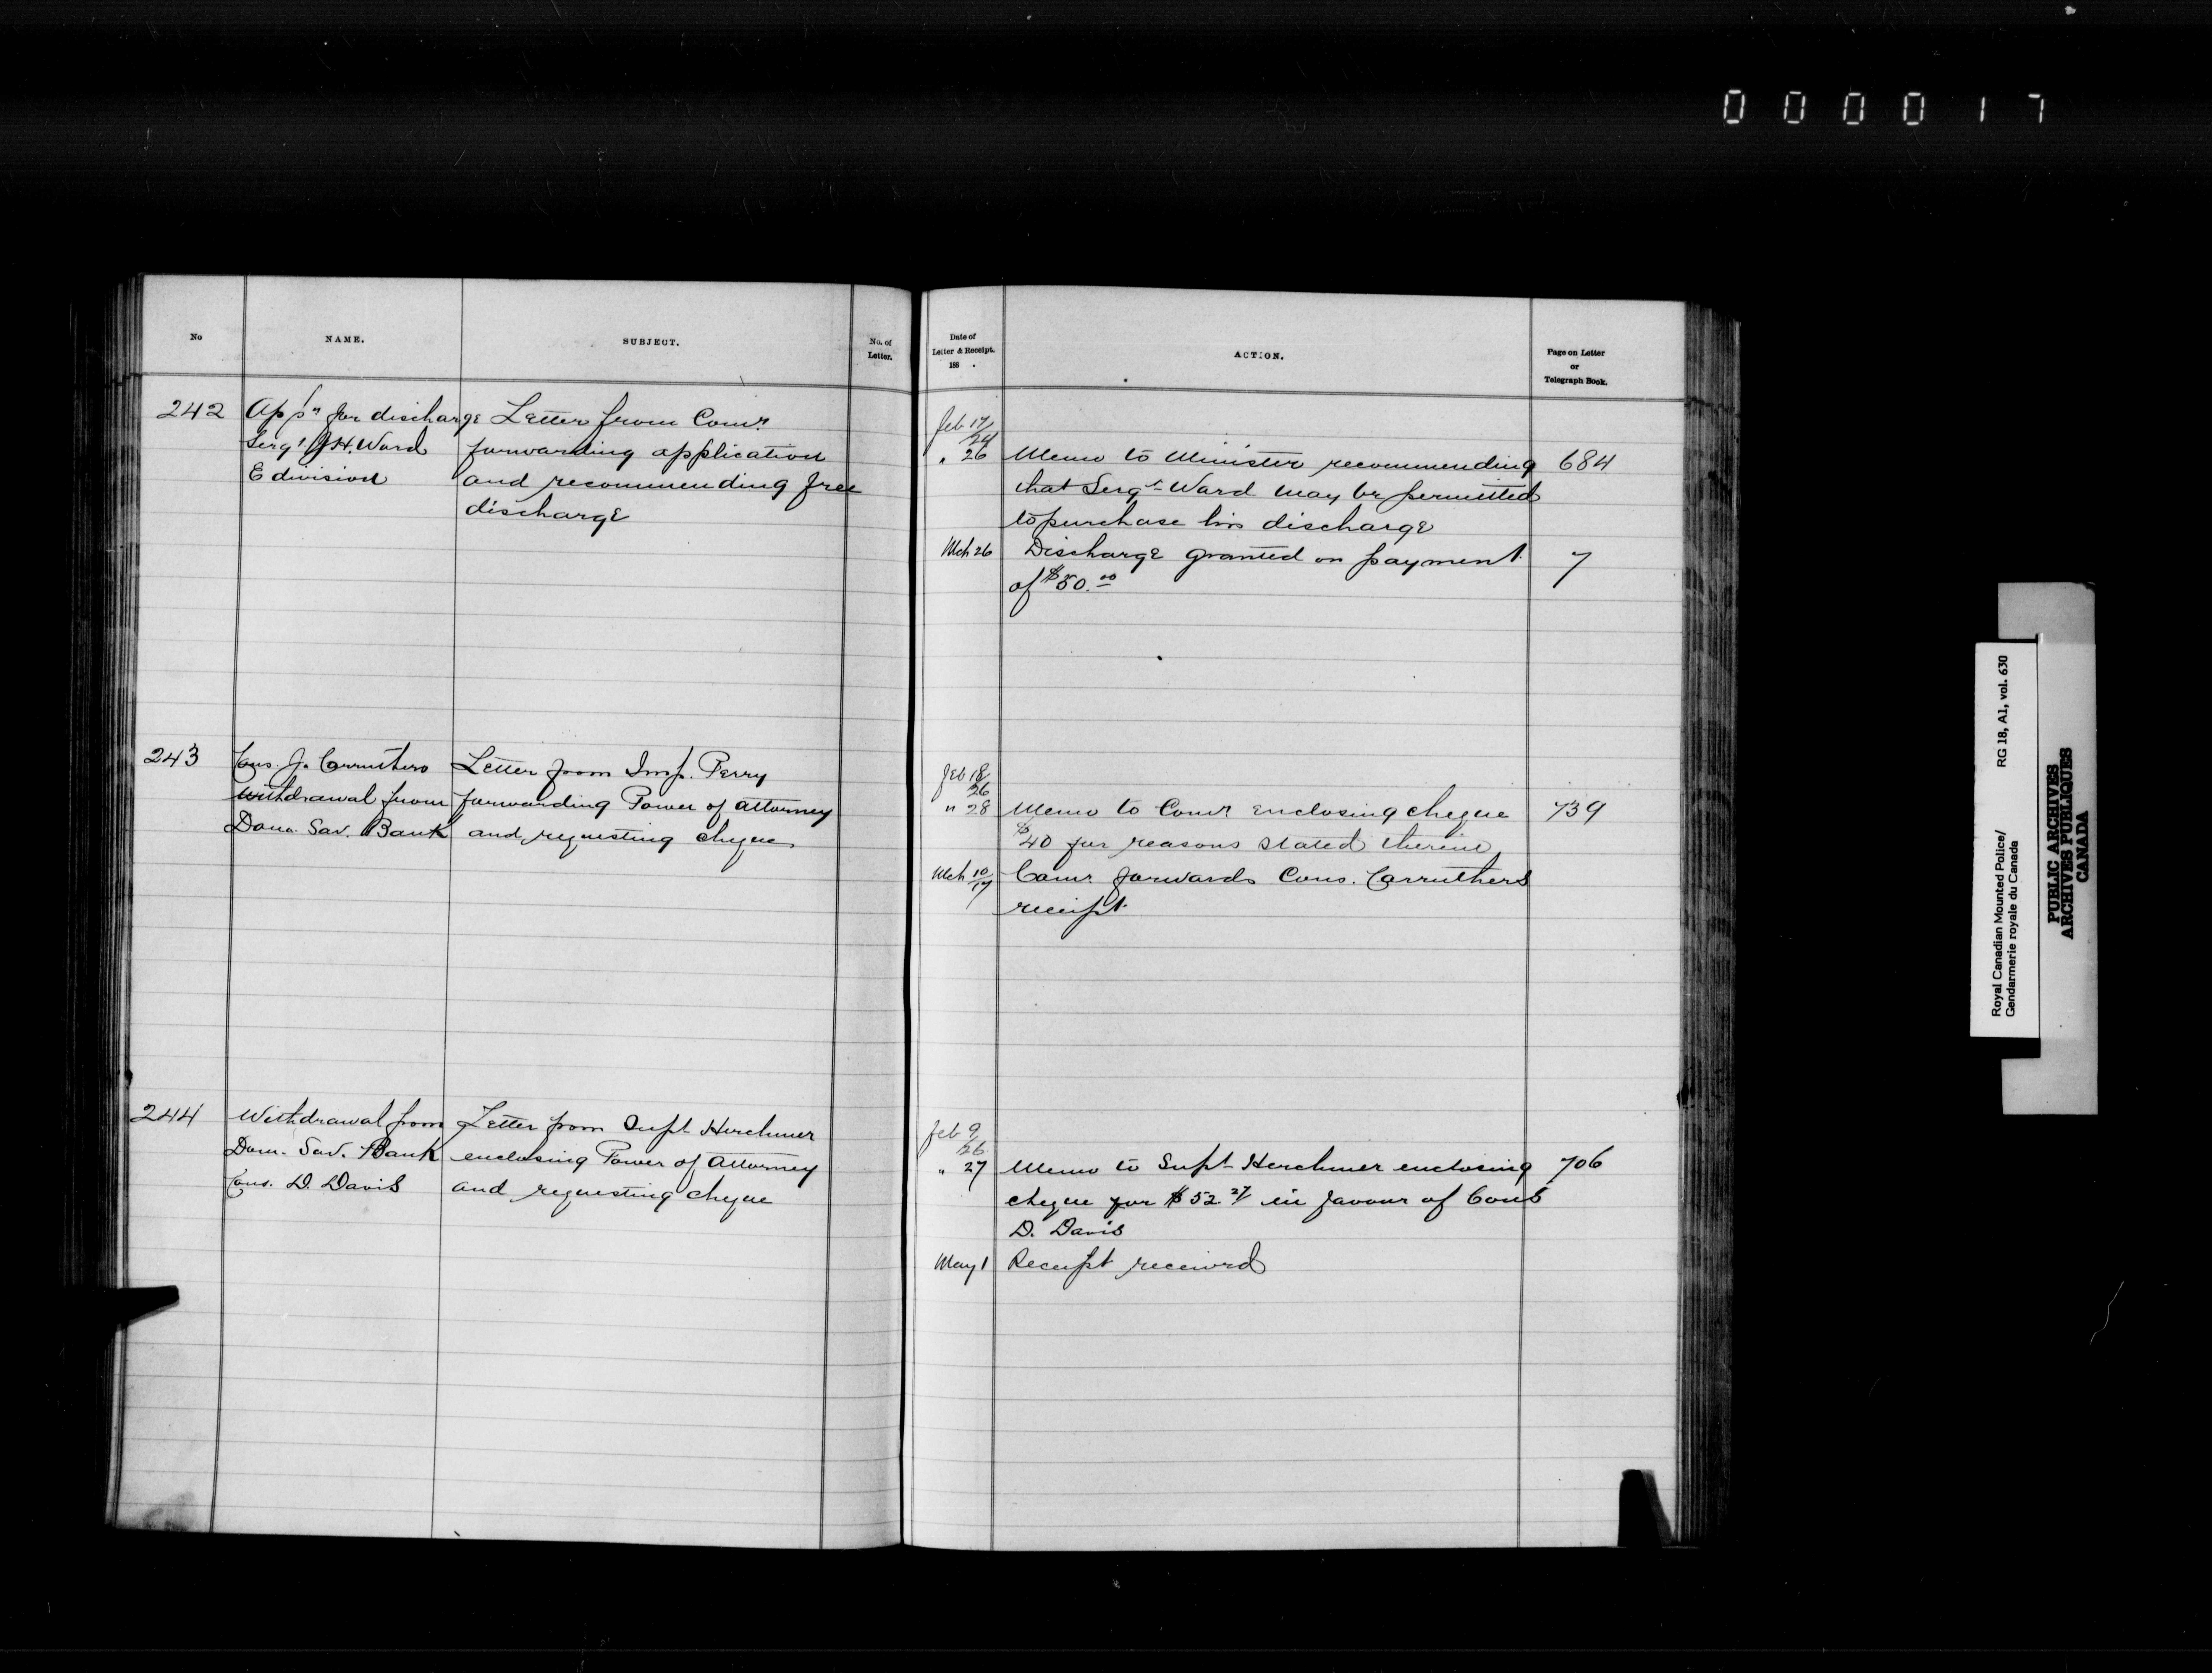 000017
No
NAME.
SUBJECT.
No. of
Letter.
Date of
Letter & Receipt.
188 .
ACTION.
Page on Letter
or
Telegraph Book.
242
Appn for discharge
Sergt. J.H. Ward
E division
Letter from Comr.
forwarding application
and recommending free
discharge
Feb 17/24
" 26
Memo to Minister recommending
that Sergt Ward may be permitted
to purchase his discharge
684
Mch 26
Discharge granted on payment
of $50.00
7
243
Cons. J. Carruthers
Withdrawal from
Dom. Sav. Bank
Letter from Insp. Perry
forwarding Power of attorney
and requesting cheque
Feb 18/26
" 28
Memo to Comr enclosing cheque
$40 for reasons stated therein
739
Mch 10/17
Comr. forwards Cons. Carruthers
receipt
244
Withdrawal from
Dom. Sav. Bank
Cons. D. Davis
Letter from Supt Herchmer
enclosing Power of attorney
and requesting cheque
Feb 9/26
" 27
Memo to Supt Herchmer enclosing
cheque for $52.27 in favour of Cons
D. Davis
706
May 1
Receipt received
Royal Canadian Mounted Police/
Gendarmerie royale du Canada
RG 18, A1, vol. 630
PUBLIC ARCHIVES
ARCHIVES PUBLIQUES
CANADA